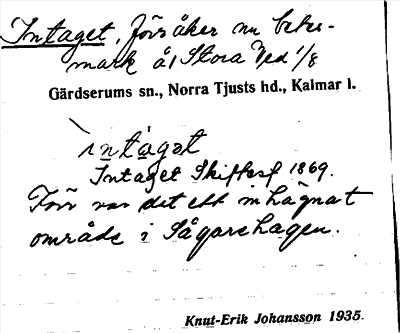 Intaget. Förr åker nu betes-
mark å, Stora Ved 1/8
Gärdserums sn., Norra Tjusts hd., Kalmar l.
ìntagat
Intaget Skiftesf 1869.
Förr var det ett inhägnat
område i Sågarehagen.
Knut-Erik Johansson 1935.